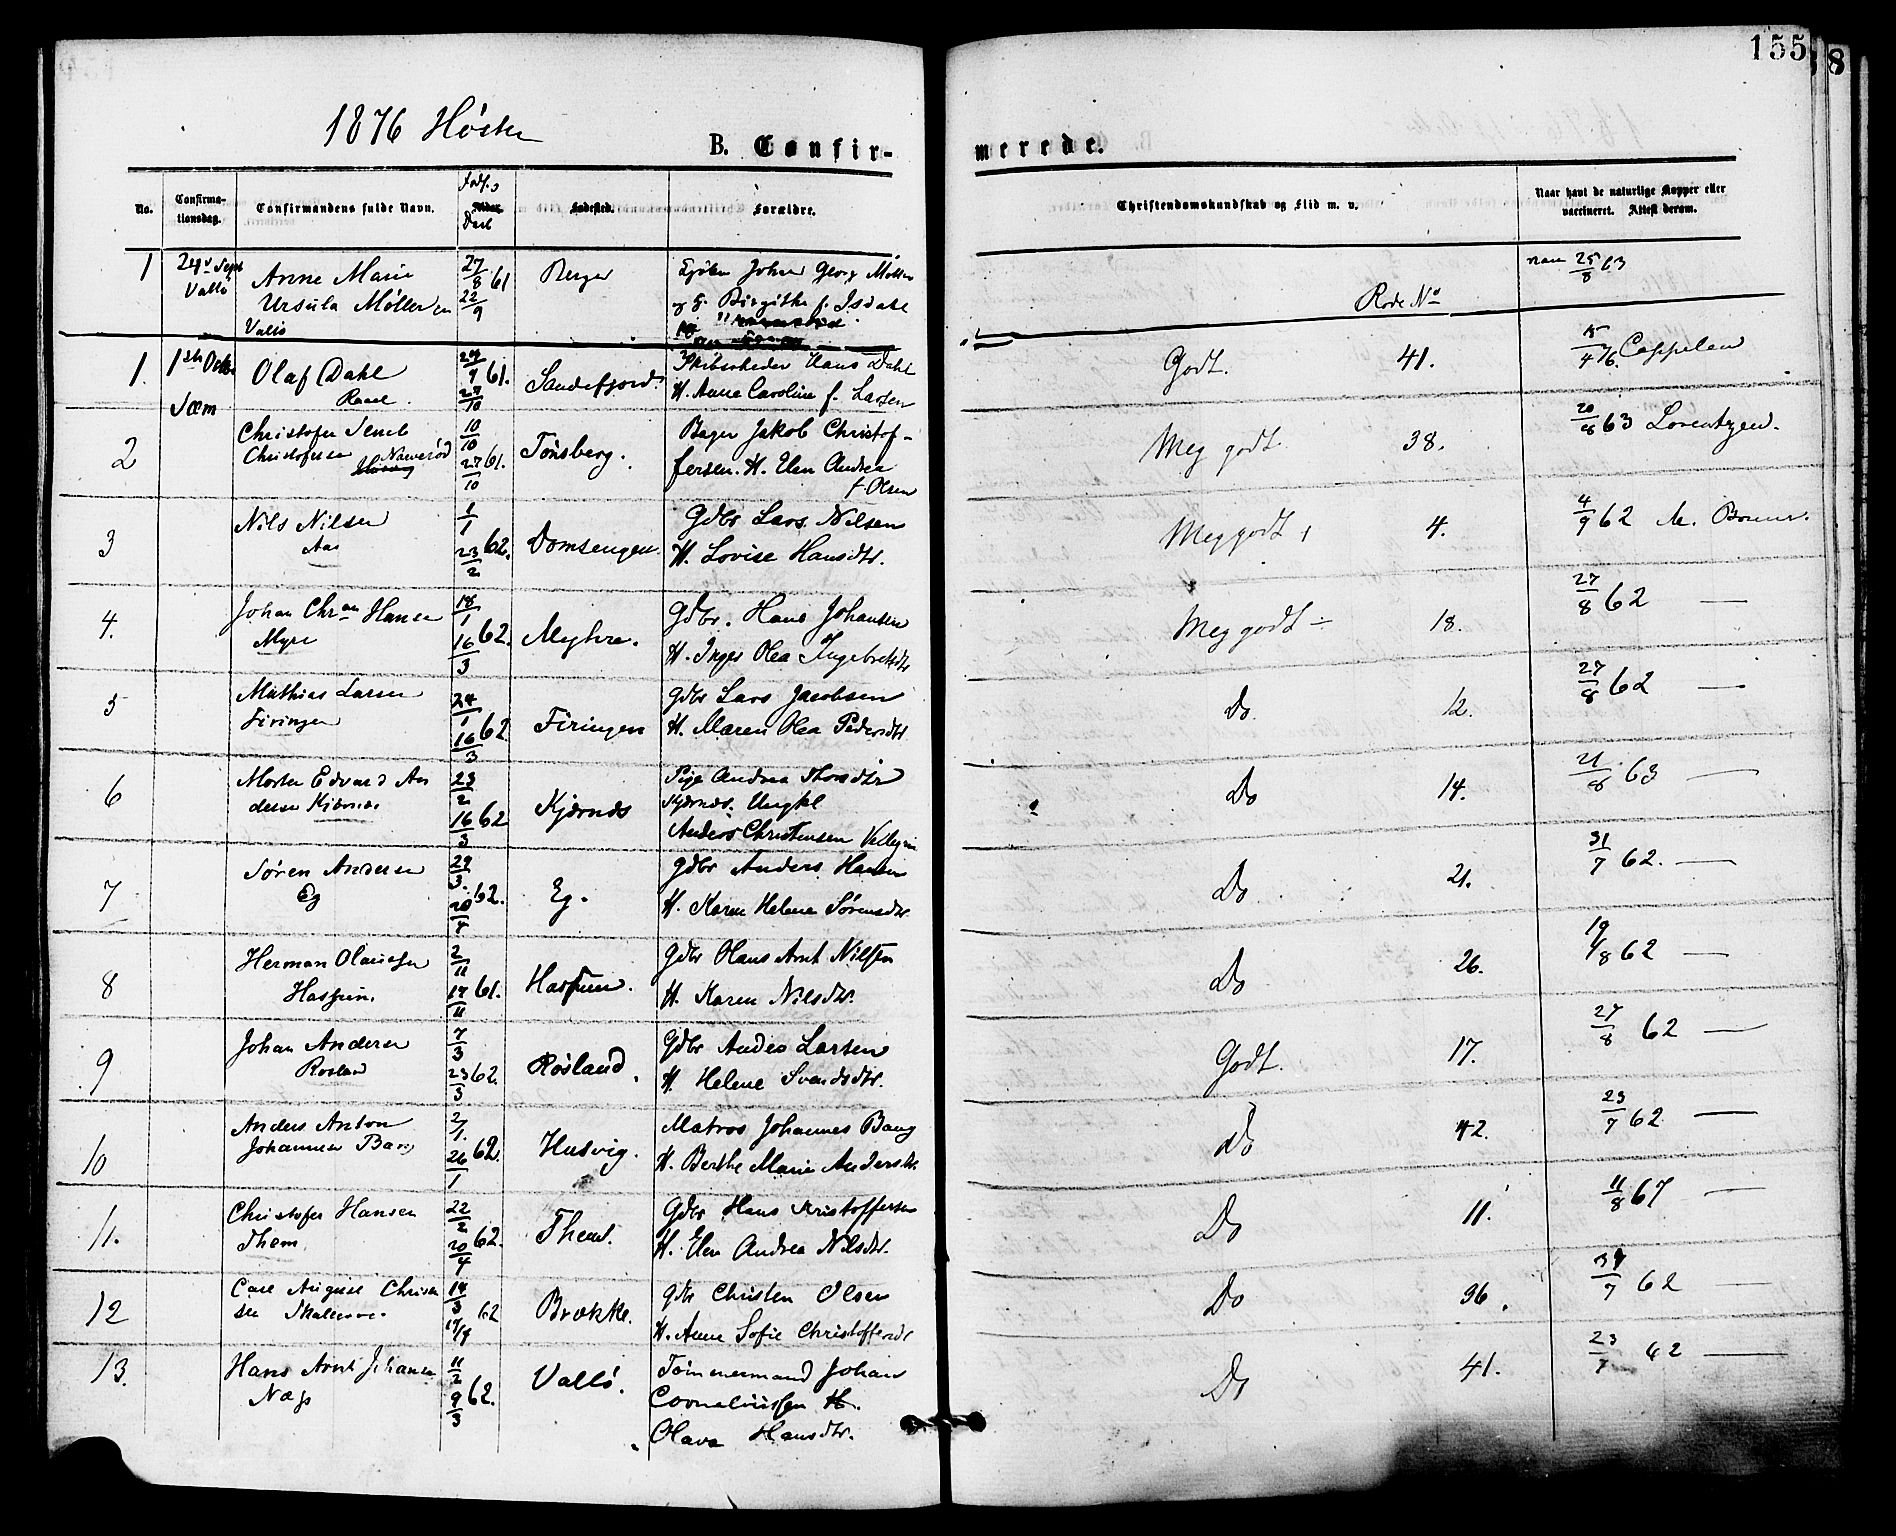 155
8
1876 Høsten
B. Confir-
merede.
No.
Confirma-
tionsdag.
Confirmandens fulde Navn.
Daab
Fødested.
Forældre.
Christendomskundskab og Flid m. v.
Naar havt de naturlige Kopper eller
vaccineret. Attest derom.
1
Vallø
Anne Marie
Ursula Møller
Vallø
27/8 61
22/9
Berger
Johan Georg
Birgithe f. Isdahl
Rode No
25/8 63
1.
Sæm
Olaf Dahl
24/9 61.
27/10
Sandefjord.
Skibsreder Hans Dahl
H. Anne Caroline f. Larsen
Godt.
41.
Cappelen
2
Christofer
Christofersen
10/10
27/10 61.
Tønsberg.
Bager Jakob Christof-
fersen. H. Elen Andrea
f. Olsen
Meg godt
38.
20/8 63 Lorentzen.
3
Nils Nilsen
Aas
1/1
23/2 62.
Domsengen.
Gdbr Lars Nilsen
H. Lovise Hansdtr.
Meg godt
4.
4/9 62
4.
Johan Chr.an Hansen
Myre
18/1
16/3 62.
Myhre.
Gdbr. Hans Johansen
H. Inger Olea Ingebretsdtr
Meg godt ÷
18.
27/8 62 —
5
Mathias Larsen
Firingen
24/1
16/3 62
Firingen
Gdbr Lars Jacobsen
H. Maren Olea Pedersdtr
Do.
12.
27/8 62 —
6
Morten Edvard An
dersen Kjærnæs
23/2
16/3 62
Kjærnæs
Pige Andrea Thorsdtr
Kjærnæs. Ungkl
Anders Christensen
Do
14.
21/8 63 —
7
Søren Andersen
Eg
29/3.
20/4 62.
Eg.
Gdbr Anders Hansen
H. Karen Helene Sørensdtr.
Do
21.
31/7 62. —
8
Herman
2/11
61.
Gdbr Hans Arnt Nilsen
H. Karen Nilsdtr.
Do
26.
19/8 62 —
9
Johan Andersen
7/3
23/3 62.
Røsland.
Gdbr Andes Larsen
H. Helene Svendsdtr.
Godt.
17.
27/8 62 —
10
Anders Anton
Johannesen Bang
2/1.
26/1 62.
Husvig.
Matros Johannes Bang
H. Berthe Marie Andersdtr.
Do
42.
23/7 62. —
11.
Christofer Hansen
Them
22/2
20/4 62.
Them.
Gdbr Hans Kristoffersen
H. Elen Andrea Nilsdtr.
Do
11.
11/8 67 —
12
Carl August Christen
sen
14/3
62
17/4
Brække.
Gdbr Christen Olsen
H. Anne Sofie Christoffersdtr
Do
36.
62 —
13.
Hans Arnt Johansen
Næs
11/2
9/3 62.
Vallø.
Tømmermand Johan
Corneliussen H.
Olava Hansdtr.
Do
41.
23/7 62 —